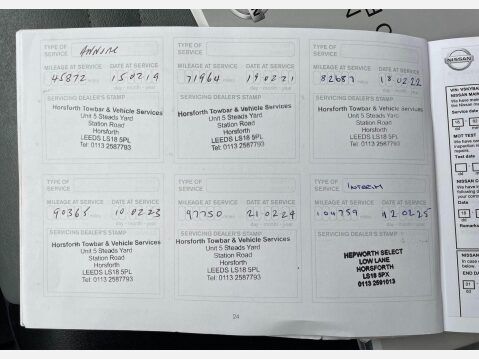 TYPE OF SERVICE
MILEAGE AT SERVICE DATE AT SERVICE
45872 miles 15 02 19
day - month - year
SERVICING DEALER'S STAMP
Horsforth Towbar & Vehicle Services
Unit 5 Steads Yard
Station Road
Horsforth
LEEDS LS18 5PL
Tel: 0113 2587793
TYPE OF SERVICE
MILEAGE AT SERVICE DATE AT SERVICE
71964 miles 19 02 21
day - month - year
SERVICING DEALER'S STAMP
Horsforth Towbar & Vehicle Services
Unit 5 Steads Yard
Station Road
Horsforth
LEEDS LS18 5PL
Tel: 0113 2587793
TYPE OF SERVICE
MILEAGE AT SERVICE DATE AT SERVICE
82687 miles 18 02 22
day - month - year
SERVICING DEALER'S STAMP
Horsforth Towbar & Vehicle Services
Unit 5 Steads Yard
Station Road
Horsforth
LEEDS LS18 5PL
Tel: 0113 2587793
TYPE OF SERVICE
MILEAGE AT SERVICE DATE AT SERVICE
90365 miles 10 02 23
day - month - year
SERVICING DEALER'S STAMP
Horsforth Towbar & Vehicle Services
Unit 5 Steads Yard
Station Road
Horsforth
LEEDS LS18 5PL
Tel: 0113 2587793
TYPE OF SERVICE
MILEAGE AT SERVICE DATE AT SERVICE
97750 miles 21 02 24
day - month - year
SERVICING DEALER'S STAMP
Horsforth Towbar & Vehicle Services
Unit 5 Steads Yard
Station Road
Horsforth
LEEDS LS18 5PL
Tel: 0113 2587793
TYPE OF SERVICE INTERIM
MILEAGE AT SERVICE DATE AT SERVICE
104759 miles 12 02 25
day - month - year
SERVICING DEALER'S STAMP
HEPWORTH SELECT
LOW LANE
HORSFORTH
LS18 5PX
0113 2591013
24
NISSAN
NISSAN MAR
We have
Service date
MOT TEST
We have
inspection
repairs.
Test date
NISSAN
We have
following
Date
Remarks
NISSAN
In case
below.
END DA